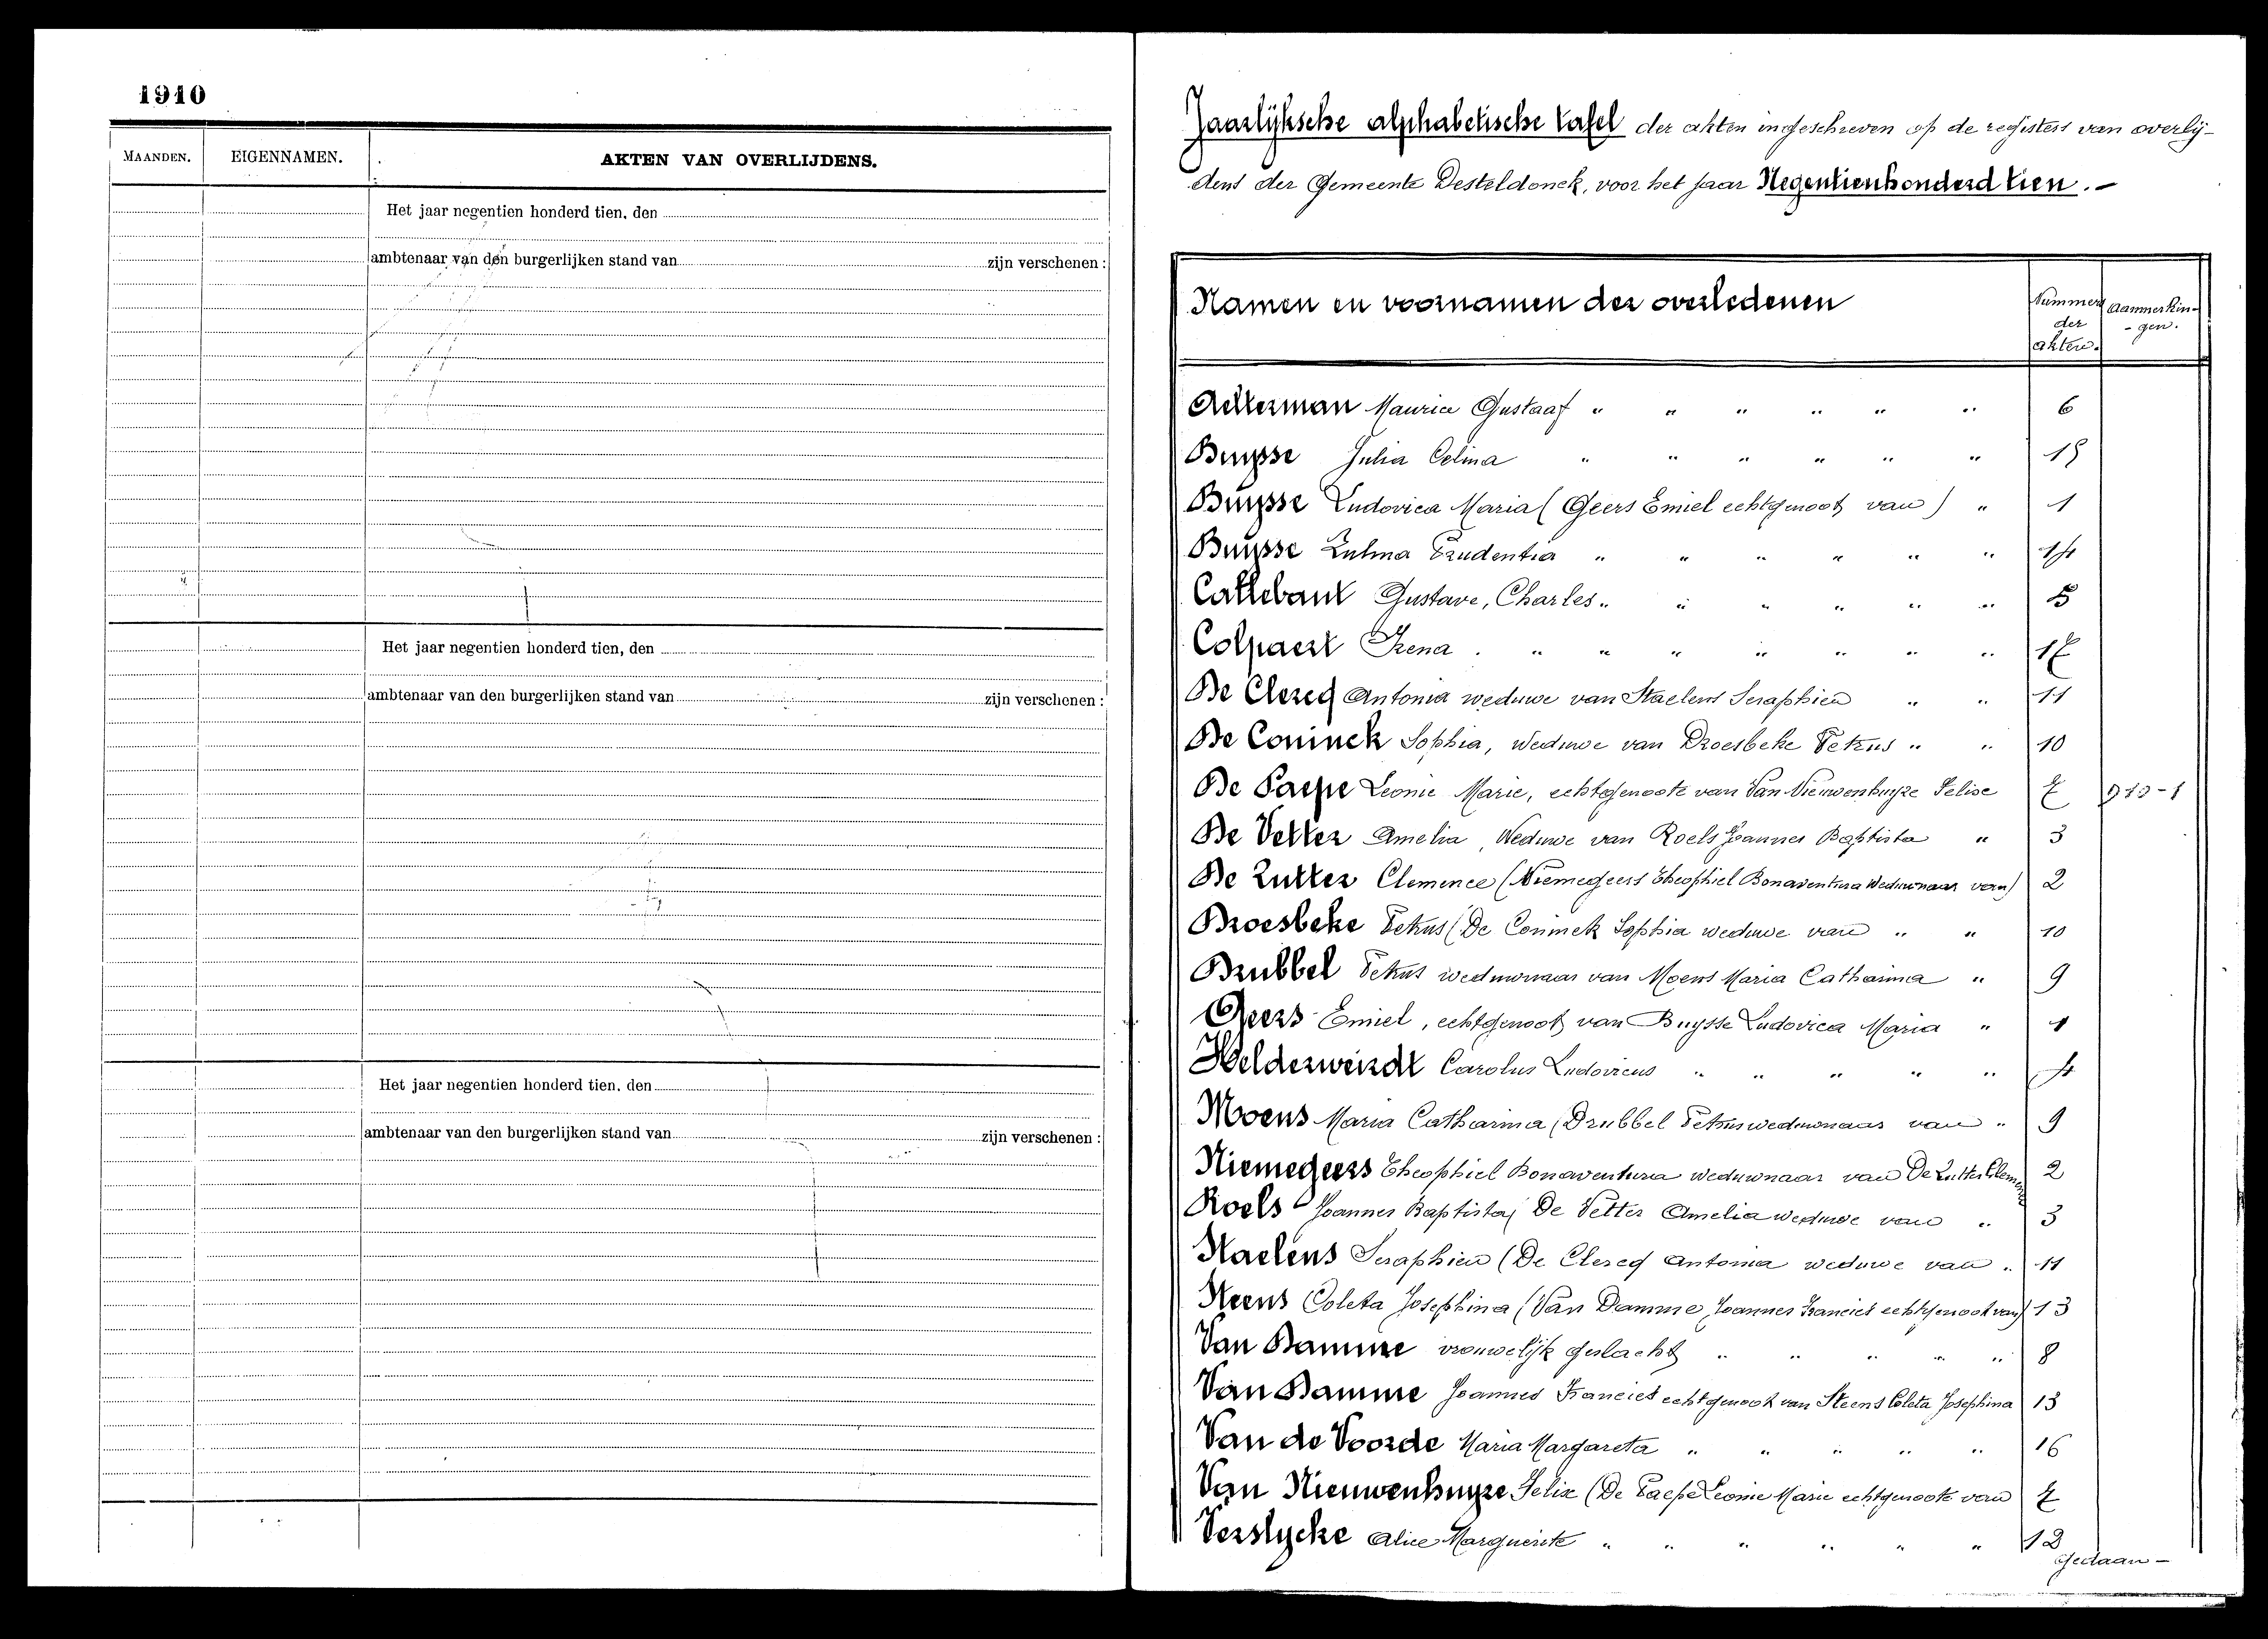 1910
MAANDEN. EIGENNAMEN. AKTEN VAN OVERLIJDENS.
Het jaar negentien honderd tien, den
ambtenaar van den burgerlijken stand van zijn verschenen :
Het jaar negentien honderd tien, den
ambtenaar van den burgerlijken stand van zijn verschenen :
Het jaar negentien honderd tien, den
ambtenaar van den burgerlijken stand van zijn verschenen :
Jaarlijksche alphabetische tafel der akten ingeschreven op de registers van overlij-
dens der Gemeente Desteldonck, voor het jaar Negentienhonderd tien.-
Namen en voornamen der overledenen
Nummers der akten. Aanmerkin- -gen.
Ackerman Maurice Gustaaf " " " " " " 6
Buysse Julia Celina " " " " " " 15
Buysse Ludovica Maria (Geers Emiel echtgenoot van) " 1
Buysse Zulma Prudentia " " " " " " 14
Callebaut Gustave, Charles " " " " " " 5
Colpaert Irena . " " " " " " " 17
De Clercq Antonia weduwe van Staelens Seraphien " " 11
De Coninck Sophia, weduwe van Droesbeke Petrus " " 10
De Paepe Leonie Marie, echtgenoote van Van Nieuwenhuyze Felix 7
De Vetter Amelia, Weduwe van Roels Joannes Baptista " 3
De Zutter Clemence (Niemegeers Theophiel Bonaventura Weduwnaar van) 2
Droesbeke Petrus (De Coninck Sophia weduwe van " " 10
Drubbel Petrus weduwnaar van Moens Maria Catharina " 9
Geers Emiel, echtgenoot van Buysse Ludovica Maria " 1
Helderweirdt Carolus Ludovicus " " " " " 4
Moens Maria Catharina (Drubbel Petrus weduwnaar van " 9
Niemegeers Theophiel Bonaventura weduwnaar van De Zutter Clemence 2
Roels Joannes Baptista (De Vetter Amelia weduwe van " 3
Staelens Seraphien (De Clercq Antonia weduwe van " 11
Steens Coleta Josephina (Van Damme Joannes Francies echtgenoot van) 13
Van Damme vrouwelijk geslacht " " " " " 8
Van Damme Joannes Francies echtgenoot van Steens Coleta Josephina 13
Van de Voorde Maria Margareta " " " " " 16
Van Nieuwenhuyze Felix (De Paepe Leonie Marie echtgenoote van 7
Verslycke Alice Marguerite " " " " " " 12
Gedaan -